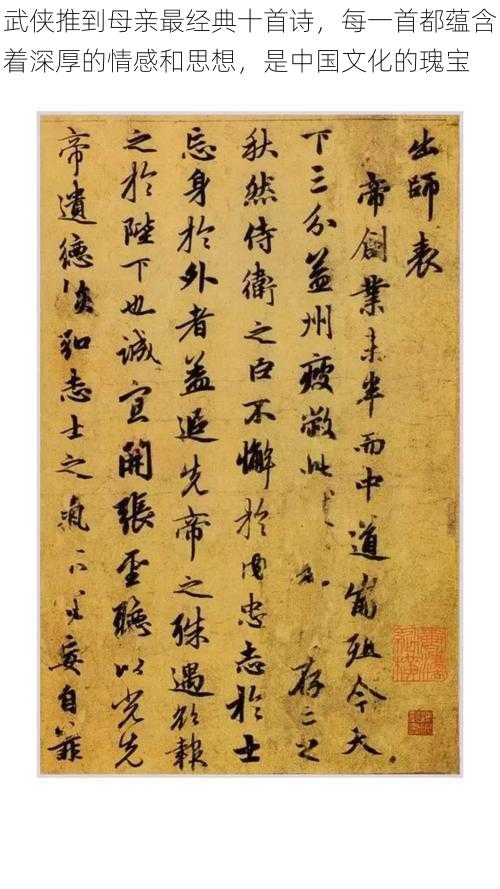 武侠推到母亲最经典十首诗，每一首都蕴含
着深厚的情感和思想，是中国文化的瑰宝
出師表
帝創業未半而中道崩殂今天
下三分益州疲敝此存亡之
秋然侍衛之臣不懈於内忠志於士
忘身於外者盖追先帝之殊遇欲報
之於陛下也誠宜開張聖聽以光先
帝遺德恢弘志士之氣不宜妄自菲